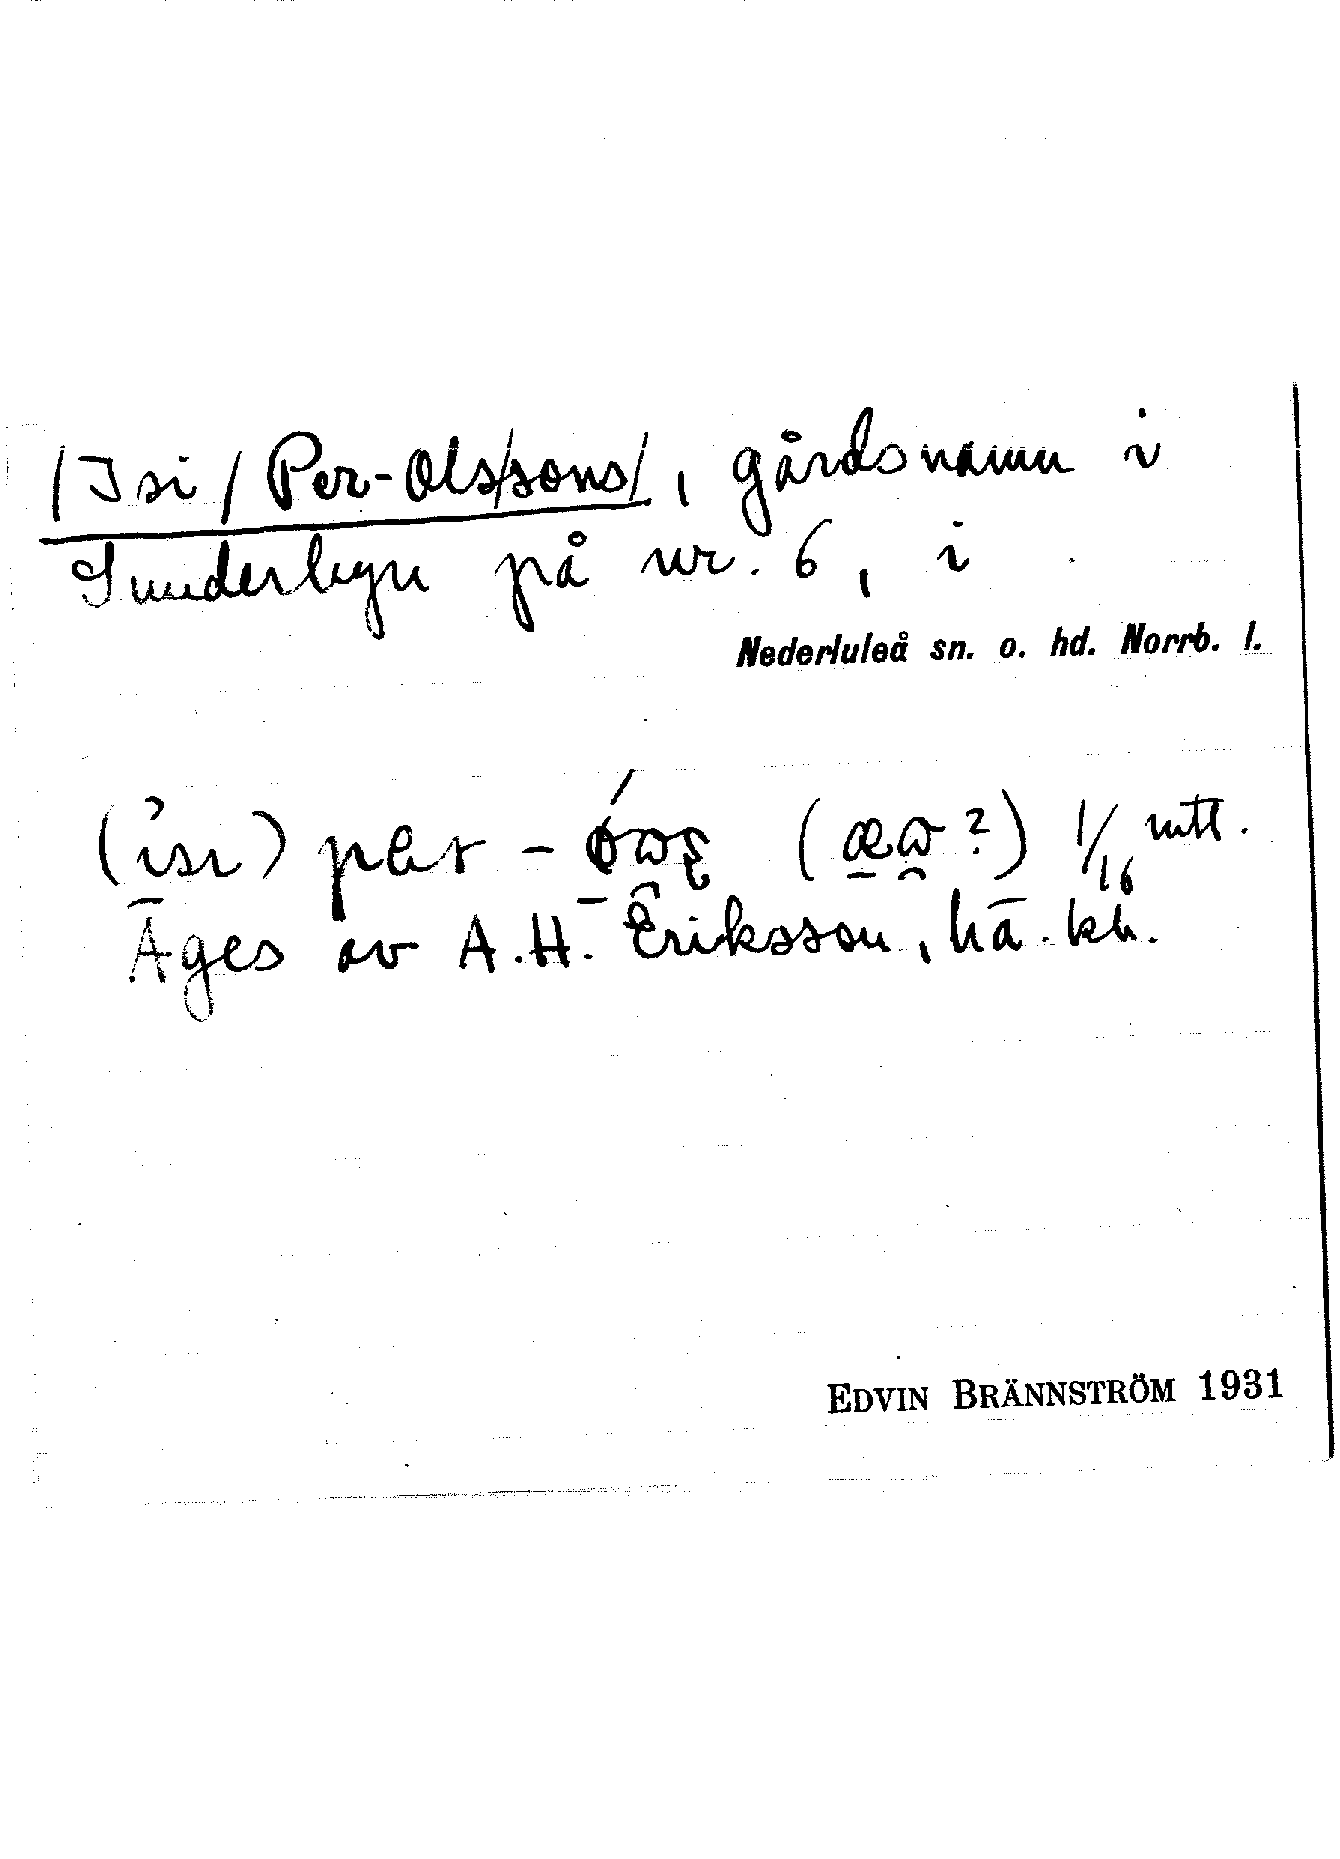 /Isi/ Per-Ols/sons/, gårdsnamn i
Sunderbyn på nr. 6, i
Nederluleå sn. o. hd. Norrb. l.
(ɪsɪ) per - (æ̱ω̯?) 1/16 mtl.
Äges av A.H. Eriksson, hä. kb.
EDVIN BRÄNNSTRÖM 1931